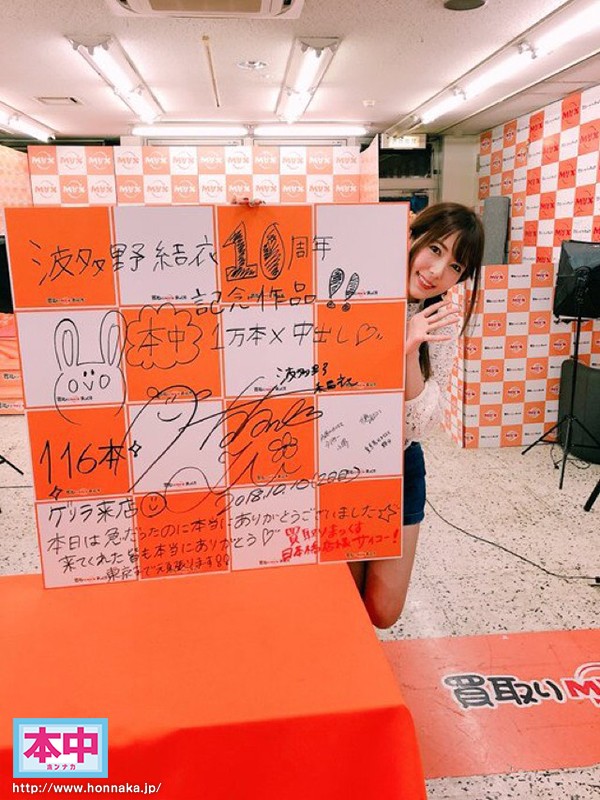 波多野結衣10周年
記念作品!!
本中
1万本×中出し♡
波多野
結衣
116本
2018.10.10(2日目)
ゲリラ来店
本日は急だったのに本当にありがとうございました☆
来てくれた皆も本当にありがとう♡
東京まで元気張ります!!
買取りまっくす
日本橋店様サイコー!
買取りMAX
本中
ホンナカ
http://www.honnaka.jp/